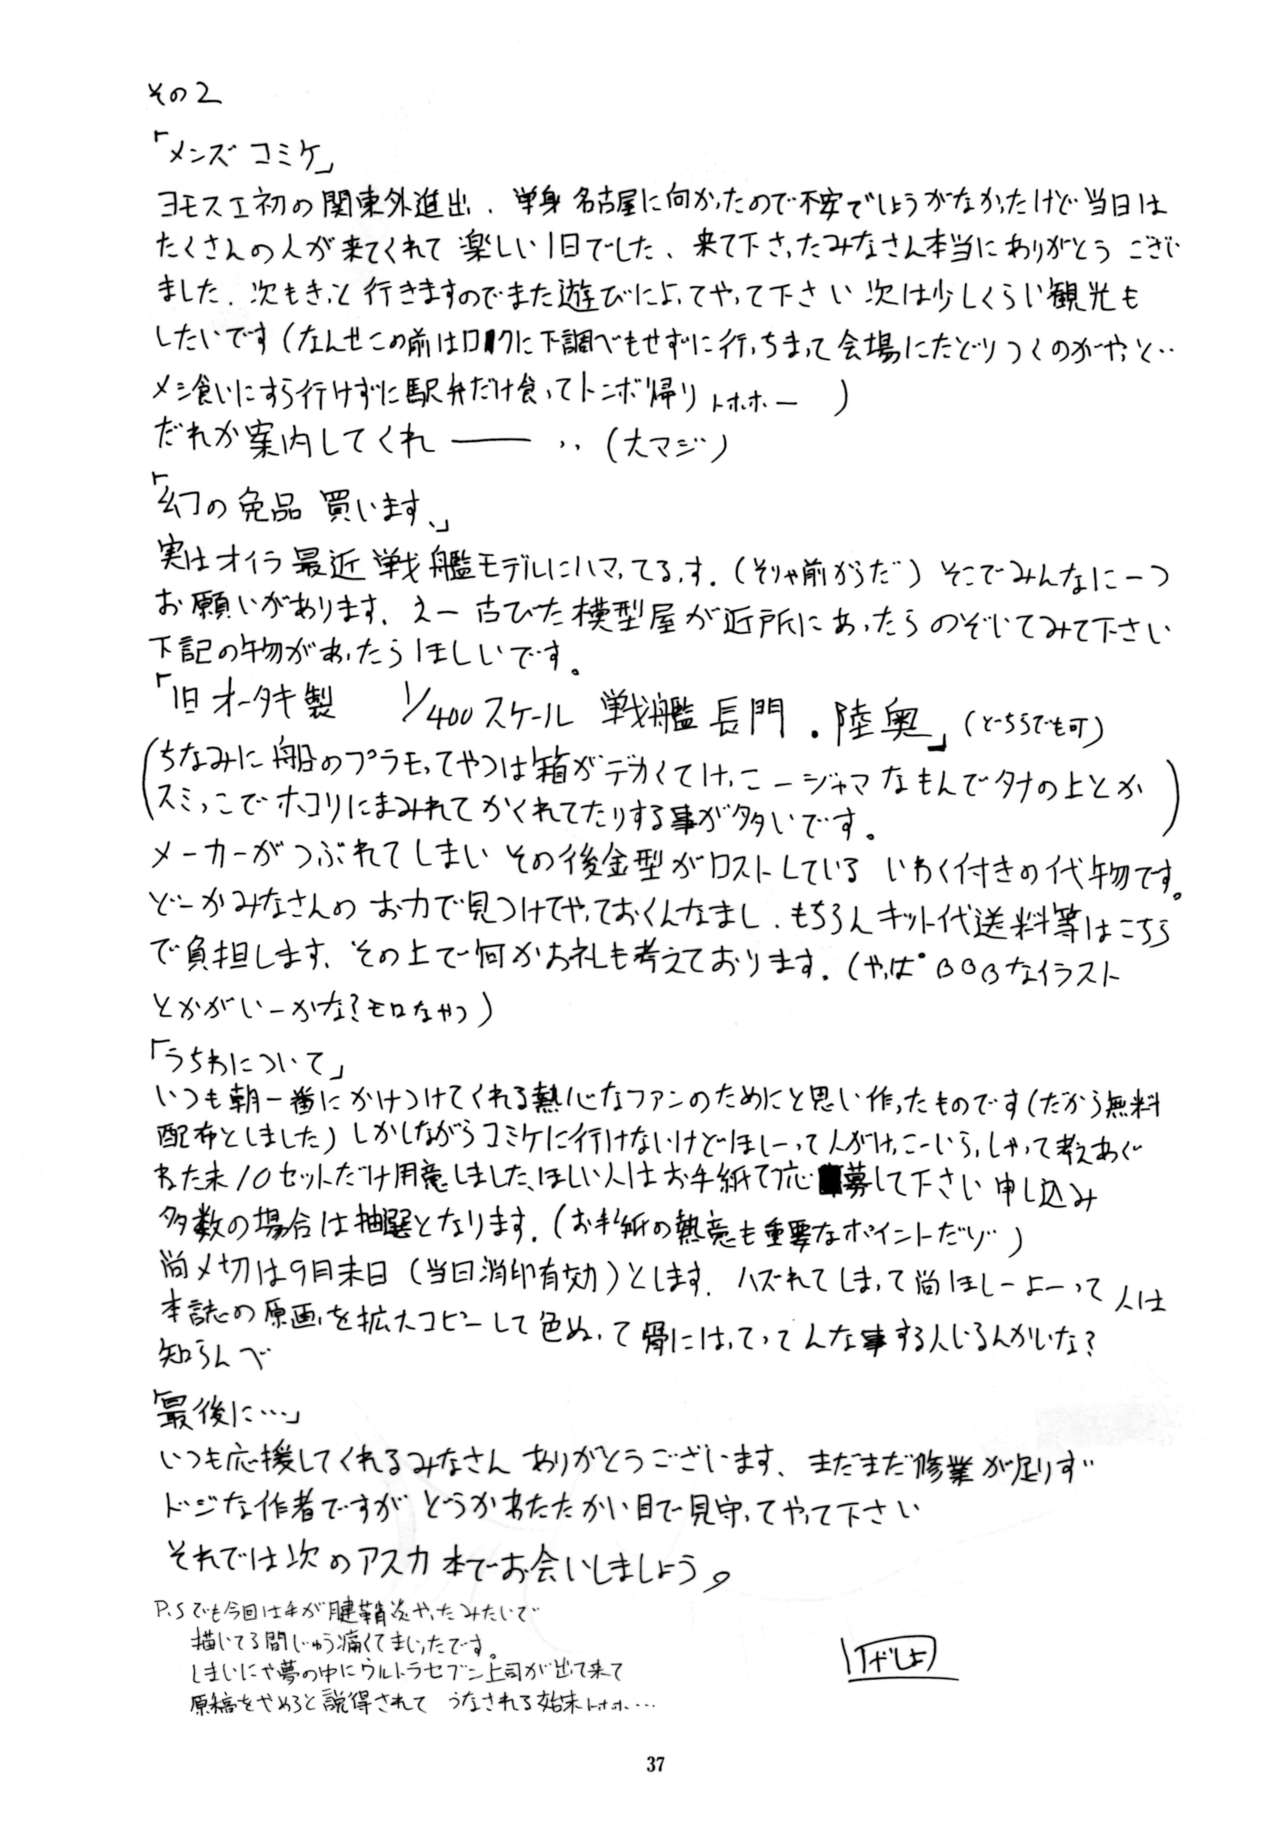 その2
「メンズコミケ」
ヨモスエ初の関東外進出、単身名古屋に向かったので不安でしょうがなかったけど当日は
たくさんの人が来てくれて楽しい1日でした、来て下さったみなさん本当にありがとうござい
ました、次もきっと行きますのでまた遊びによってやって下さい次は少しくらい観光も
したいです(なんせこの前はロクに下調べもせずに行っちまって会場にたどりつくのがやっと‥
メシ食いにすら行けずに駅弁だけ食ってトンボ帰り トホホー)
だれか案内してくれ――‥(大マジ)
「幻の免品買います、」
実はオイラ最近戦艦モデルにハマってるっす。(そりゃ前からだ)そこでみんなに一つ
お願いがあります、えー古びた模型屋が近所にあったらのぞいてみて下さい
下記の物があったらほしいです。
「旧オータキ製 1/400スケール 戦艦長門・陸奥」(どーちらでも可)
(ちなみに船のプラモってやつは箱がデカくてけっこージャマなもんでタナの上とか
スミっこでホコリにまみれてかくれてたりする事が多いです。)
メーカーがつぶれてしまいその後金型がロストしているいわく付きの代物です。
どーかみなさんのお力で見つけてやっておくんなまし、もちろんキット代送料等はこちら
で負担します、その上で何かお礼も考えております。(やっぱBOBなイラスト
とかがいーかな?モロなやつ)
「うちわについて」
いつも朝一番にかけつけてくれる熱心なファンのためにと思い作ったものです(だから無料
配布としました)しかしながらコミケに行けないけどほしーって人がけっこーいらっしゃって考えあぐ
ねた末10セットだけ用意しました、ほしい人はお手紙で応募して下さい申し込み
多数の場合は抽選となります。(お手紙の熱意も重要なポイントだゾ)
尚〆切は9月末日(当日消印有効)とします、ハズれてしまって尚ほしーよーって人は
本誌の原画を拡大コピーして色ぬって骨にはってってんな事する人いるんかいな?
知らんべ
「最後に…」
いつも応援してくれるみなさんありがとうございます、まだまだ修業が足りず
ドジな作者ですがどうかあたたかい目で見守ってやって下さい
それでは次のアスカ本でお会いしましょう。
P.Sでも今回は手が腱鞘炎やったみたいで
描いてる間じゅう痛くてまいったです。
しまいにゃ夢の中にウルトラセブン上司が出て来て
原稿をやめろと説得されて うなされる始末トホホ…
37